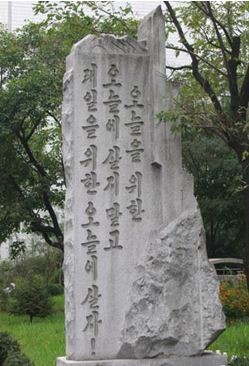 오늘을 위한
오늘에 살지 말고
래일을 위한 오늘에 살자!